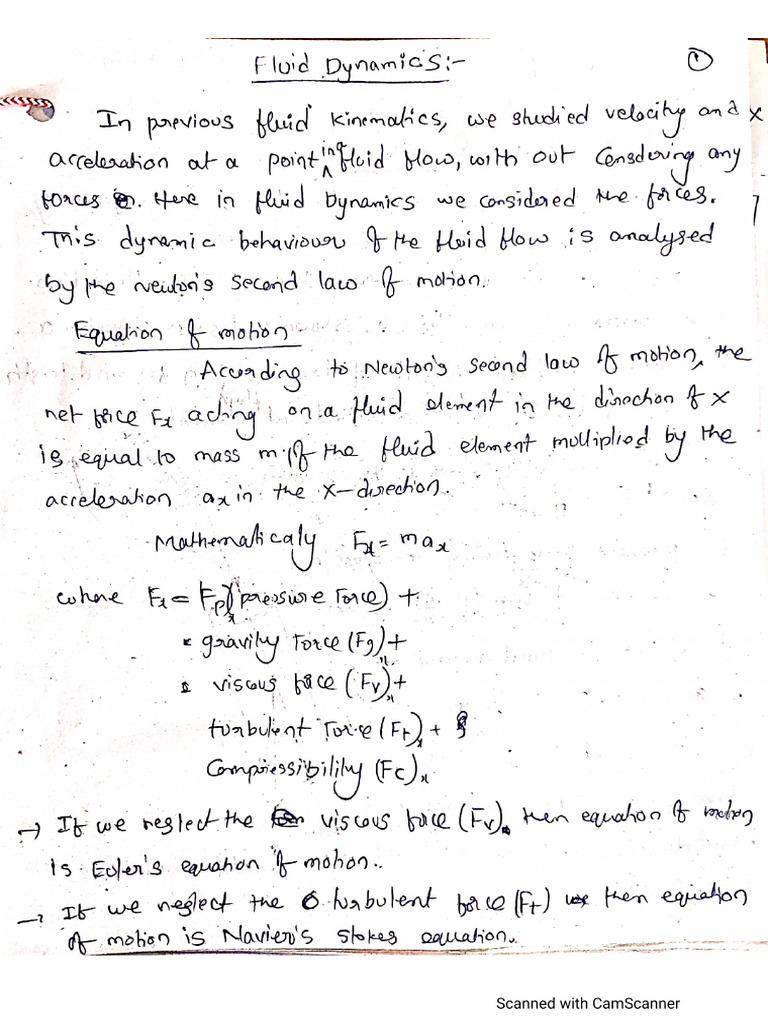 Fluid Dynamics:- 1
In previous fluid kinematics, we studied velocity and x
acceleration at a point in fluid flow, with out Censdering any
forces. Here in fluid Dynamics we considered the forces.
This dynamic behaviour of the fluid flow is analysed
by the newton's second law of motion.
Equation of motion
According to Newton's second law of motion, the
net force Fx acting on a fluid element in the direction of x
is equal to mass m of the fluid element multiplied by the
acceleration ax in the x-direction.
Mathematicaly Fx = max
where Fx = (Fp)x (pressure Force) +
gravity Force (Fg)x +
viscous force (Fv)x +
turbulent Force (Ft)x +
Compressibility (Fc)x
→ If we neglect the viscous force (Fv). then equation of motion
is Euler's equation of motion..
→ If we neglect the turbulent force (Ft) then equation
of motion is Navier's stokes equation..
Scanned with CamScanner